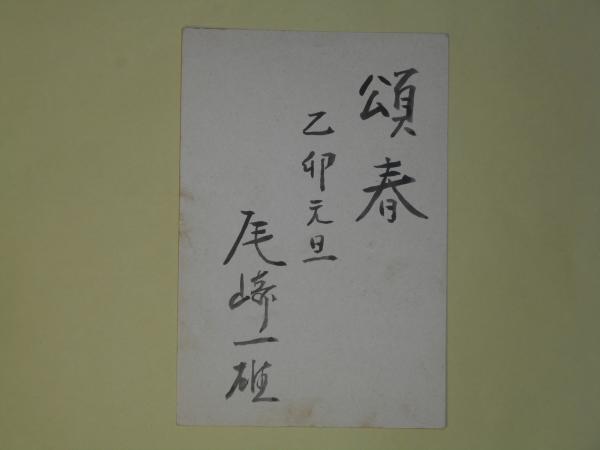 頌春
乙卯元旦
尾崎一雄